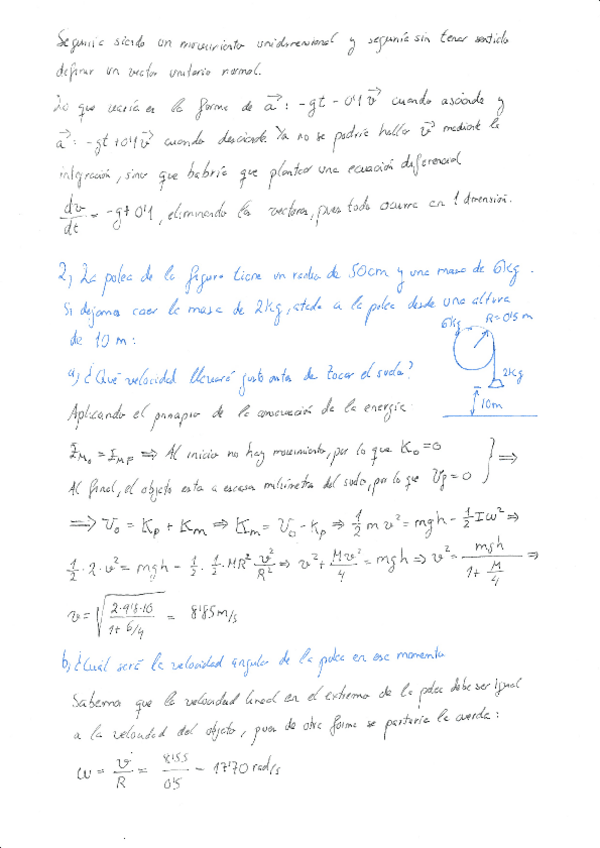 Seguiría siendo un movimiento unidimensional y seguiría sin tener sentido
definir un vector unitario normal.
Lo que varía es la forma de a⃗: -gt - 0'1 v⃗ cuando asciende y
a⃗: -gt + 0'1 v⃗ cuando desciende. Ya no se podría hallar v⃗ mediante la
integración, sino que habría que plantear una ecuación diferencial
dv/dt = -g + 0'1, eliminando los vectores, pues todo ocurre en 1 dimensión.
2) La polea de la figura tiene un radio de 50cm y una masa de 6kg.
Si dejamos caer la masa de 2kg, atada a la polea desde una altura
de 10 m:
6kg R=0'5 m
2kg
10m
a) ¿Qué velocidad llevará justo antes de tocar el suelo?
Aplicando el principio de la conservación de la energía:
E_M₀ = E_MF ⇒ Al inicio no hay movimiento, por lo que K₀ = 0
Al final, el objeto está a escasos milímetros del suelo, por lo que U_F = 0 } ⇒
⇒ U₀ = K_p + K_m ⇒ K_m = U₀ - K_p ⇒ 1/2 m v² = mgh - 1/2 I ω² ⇒
1/2 · 2 · v² = mgh - 1/2 · 1/2 · MR² v²/R² ⇒ v² + Mv²/4 = mgh ⇒ v² = mgh/(1 + M/4) ⇒
v = √(2·9'8·10/(1 + 6/4)) = 8'85 m/s
b) ¿Cuál será la velocidad angular de la polea en ese momento
Sabemos que la velocidad lineal en el extremo de la polea debe ser igual
a la velocidad del objeto, pues de otra forma se partiría la cuerda:
ω = v/R = /0'5 = 17'70 rad/s